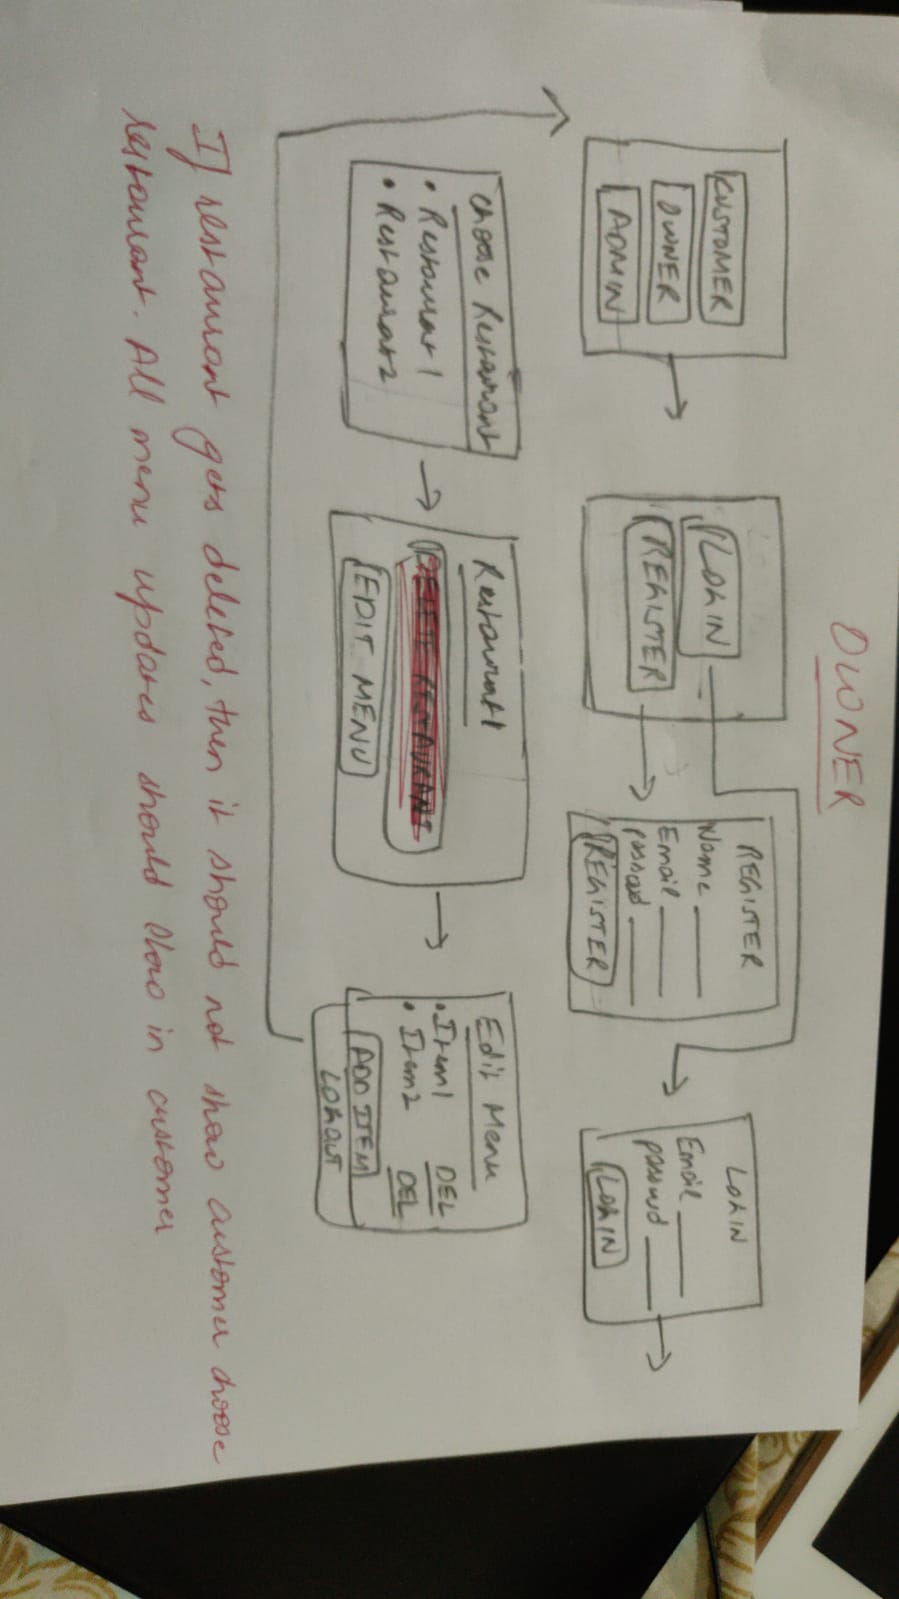 OWNER
CUSTOMER
OWNER
ADMIN
LOGIN
REGISTER
REGISTER
Name
Email
REGISTER
LOGIN
Email
LOGIN
Choose Restaurant
• Restaurant 1
• Restaurant 2
Restaurant 1
DELETE RESTAURANT
EDIT MENU
Edit Menu
• Item1 DEL
• Item2 DEL
ADD ITEM
LOGOUT
If restaurant gets deleted, then it should not show customer choose
restaurant. All menu updates should show in customer